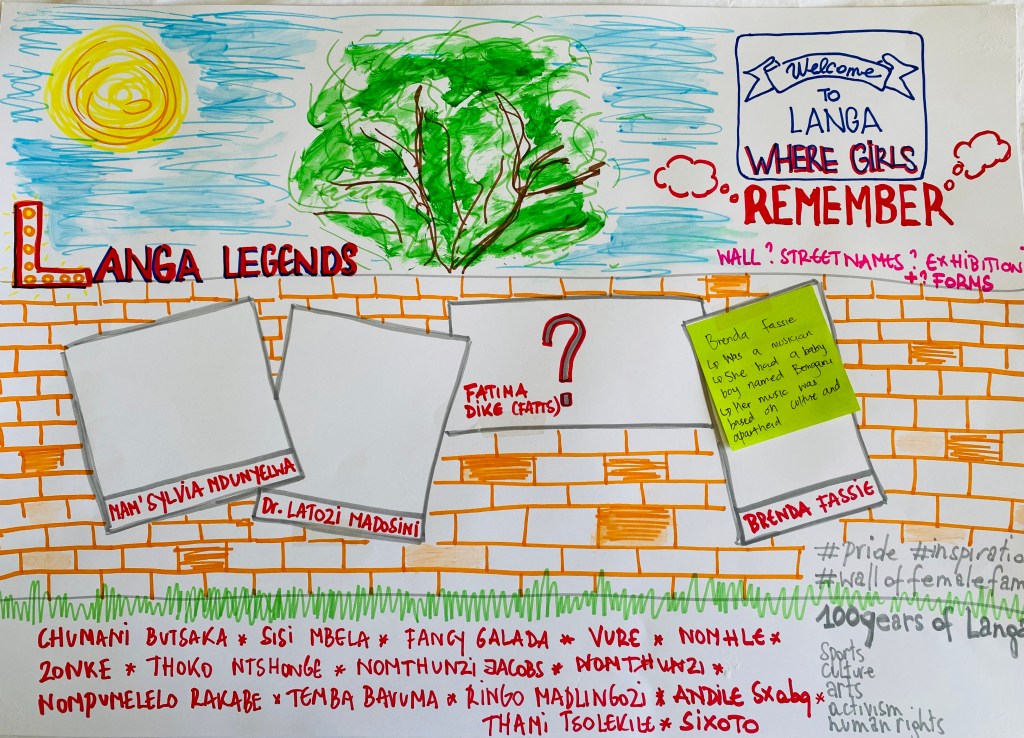 Welcome
TO
LANGA
WHERE GIRLS
REMEMBER
LANGA LEGENDS
WALL? STREET NAMES? EXHIBITION
+? FORMS
?
FATIMA
DIKE (FATTS)
Brenda Fassie
↳ was a musician
↳ She had a baby
boy named
↳ Her music was
based on culture and
apartheid
MAM' SYLVIA MDUNYELWA
Dr. LATOZI MADOSINI
BRENDA FASSIE
#pride #inspiratio
#walloffemalefam
100years of Langa
sports
culture
arts
activism
human rights
CHUMANI BUTSAKA * SISI MBELA * FANCY GALADA * VURE * NOMHLE *
ZONKE * THOKO NTSHONGE * NOMTHUNZI JACOBS * NOMTHUNZI *
NOMPUMELELO RAKABE * TEMBA BAVUMA * RINGO MADLINGOZI * ANDILE *
THAMI TSOLEKILE * SIXOTO